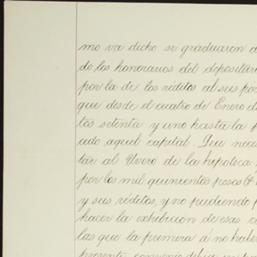 mo va dicho se graduaron
de los honorarios del depositar
por la de los réditos al seis por
que desde el cuatro de Enero d
tos setenta y uno hasta la
aquel capital. Que nece
tar al Yvero de la hipoteca
por los mil quinientos pesos
y sus réditos, y no pudiendo
hacer la exhibicion de esas c
las que la primera á no habe
presente convenio debia